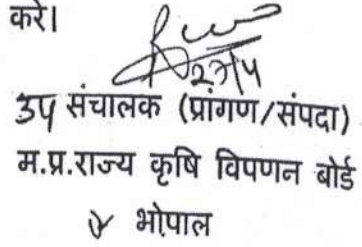 करे।
27/4
उप संचालक (प्रांगण/संपदा)
म.प्र.राज्य कृषि विपणन बोर्ड
भोपाल